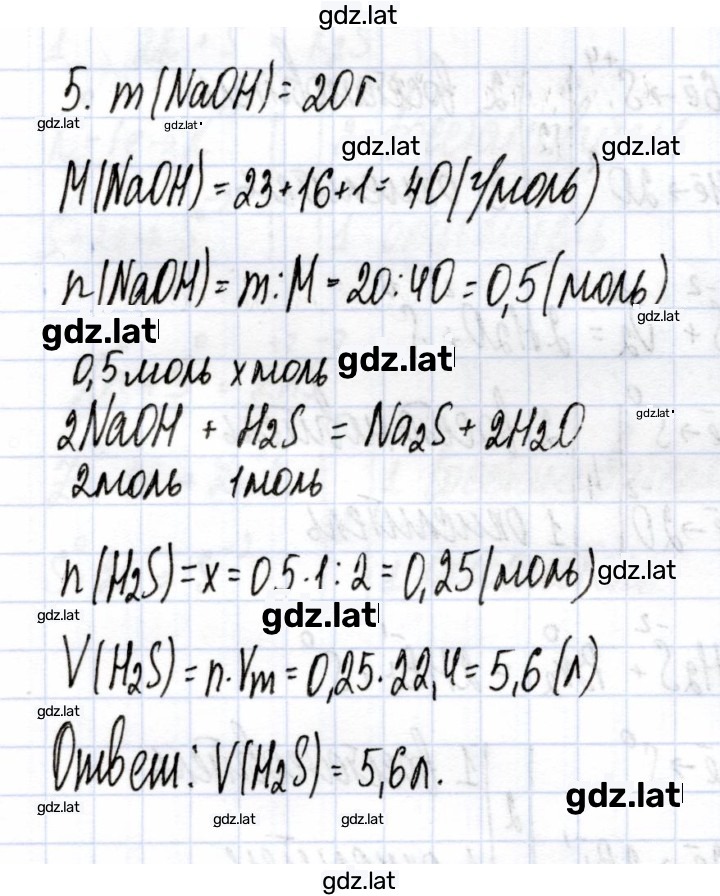 gdz.lat
5. m(NaOH) = 20 г
gdz.lat gdz.lat
gdz.lat gdz.lat
M(NaOH) = 23+16+1 = 40 (г/моль)
n(NaOH) = m:M = 20:40 = 0,5 (моль)
gdz.lat
gdz.lat
0,5 моль x моль gdz.lat
gdz.lat
2NaOH + H2S = Na2S + 2H2O
2 моль 1 моль
n(H2S) = x = 0 5·1:2 = 0,25 (моль) gdz.lat
gdz.lat gdz.lat
V(H2S) = n·Vm = 0,25·22,4 = 5,6 (л)
gdz.lat
Ответ: V(H2S) = 5,6 л.
gdz.lat
gdz.lat
gdz.lat gdz.lat
gdz.lat